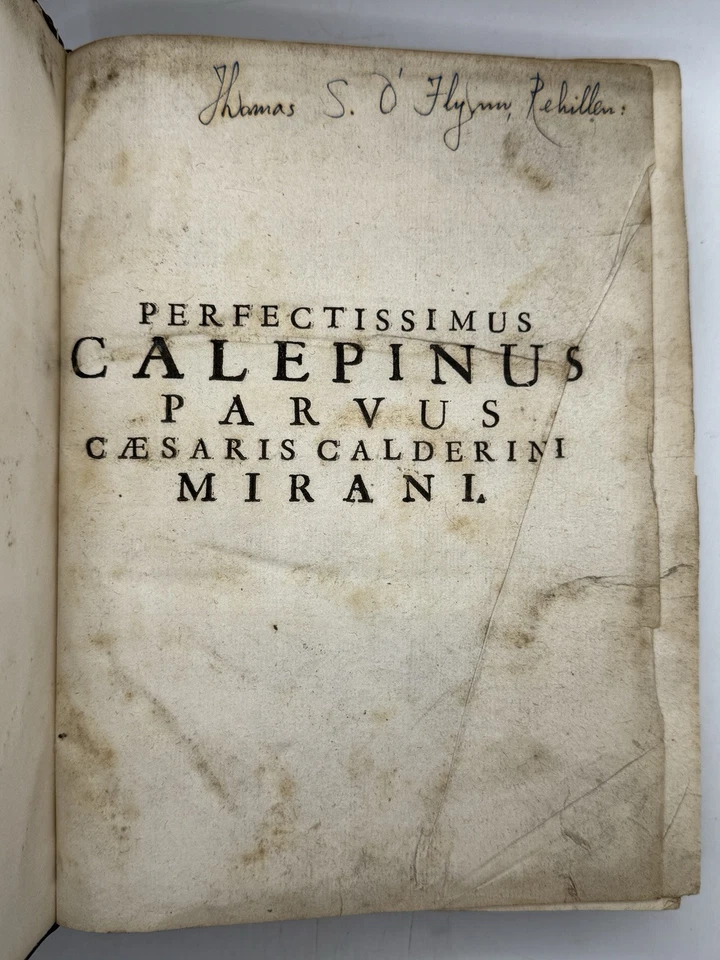 Thomas S. O'Flynn, Rehillen:
PERFECTISSIMUS
CALEPINUS
PARVUS
CÆSARIS CALDERINI
MIRANI.